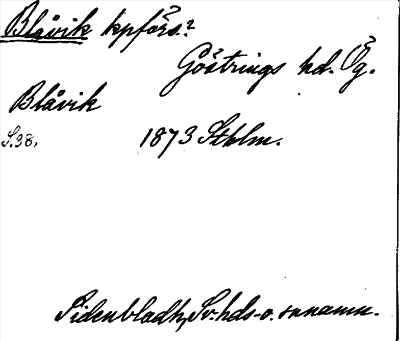 Blåvik kpförs.?
Göstrings hd. Ög.
Blåvik
S. 98, 1873 Sthlm.
Sidenbladh, Sv. hds- o. snnamn.